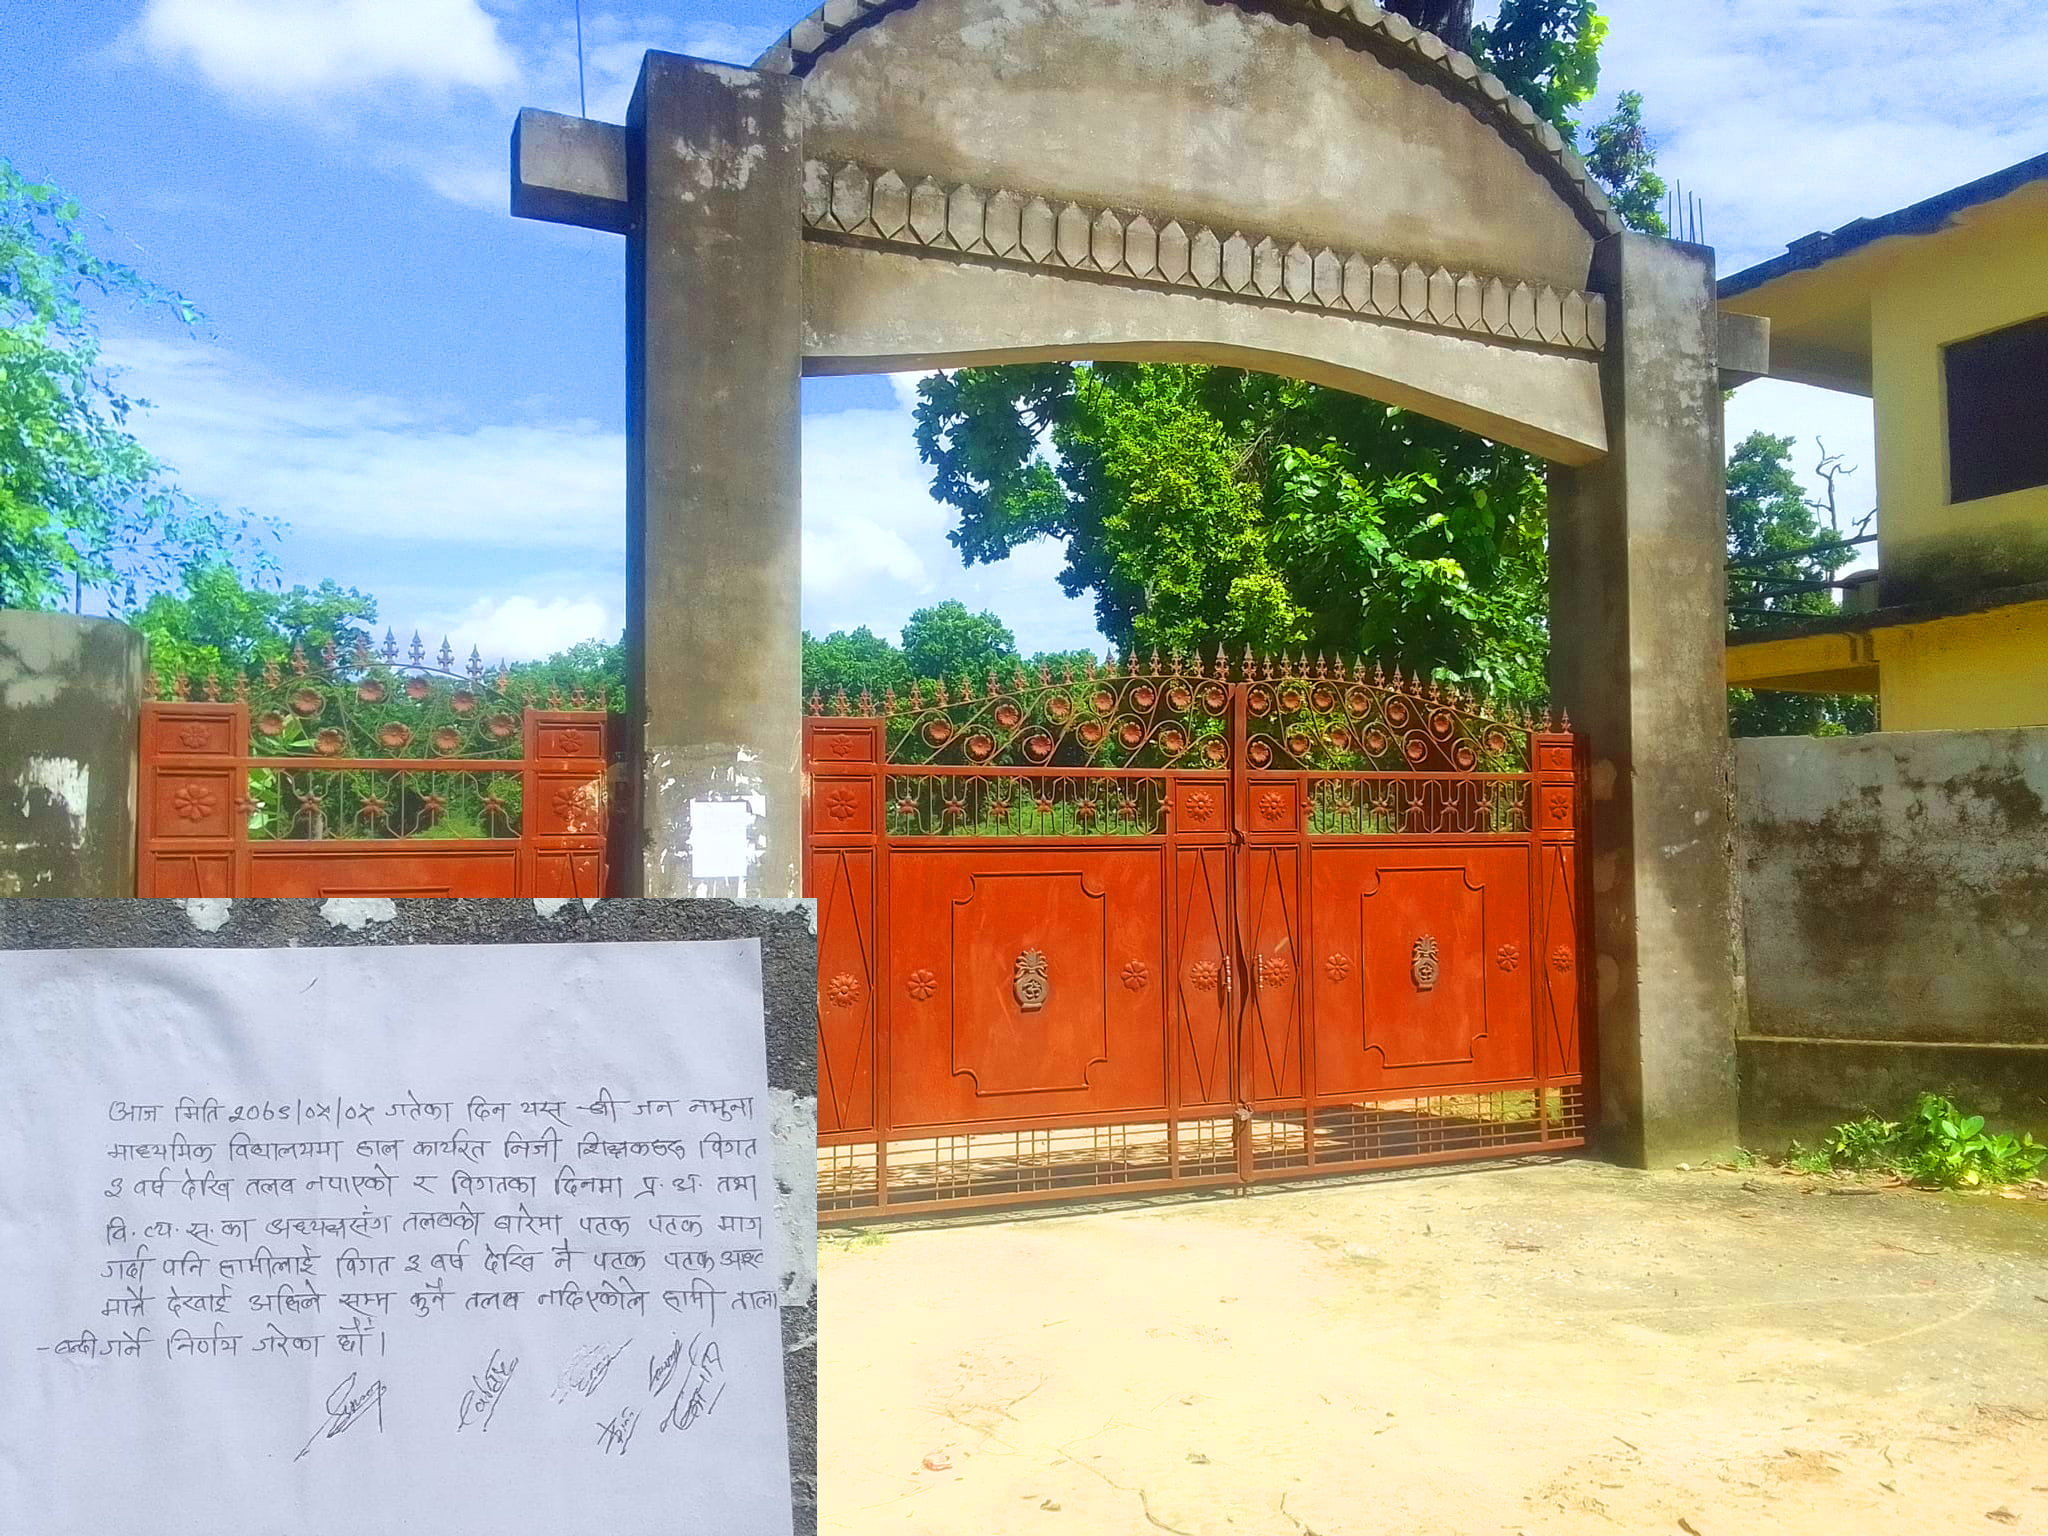 आज मिति २०७९/०५/०५ गतेका दिन यस श्री जन नमुना
माध्यमिक विद्यालयमा हाल कार्यरत निजी शिक्षकहरु विगत
३ वर्ष देखि तलब नपाएको र विगतका दिनमा प्र. अ. तथा
वि. व्य. स. का अध्यक्षसंग तलबको बारेमा पटक पटक माग
गर्दा पनि हामीलाई विगत ३ वर्ष देखि नै पटक पटक
मात्रै देखाई अहिले सम्म कुनै तलब नदिएकोले हामी ताला
-बन्दी गर्ने निर्णय गरेका छौं।